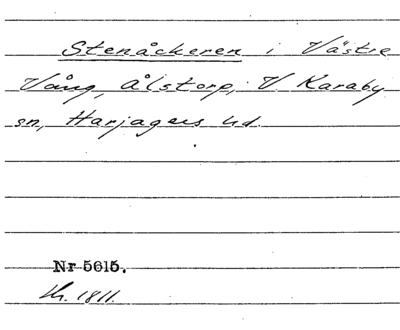 Stenåckeren i Västre
Vång, Ålstorp, V Karaby
sn, Harjagers hd.
Nr 5615.
Kr. 1811.